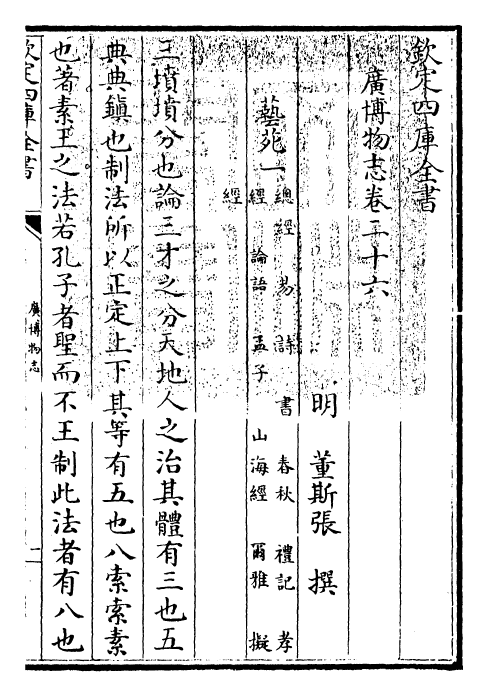 欽定四庫全書
廣博物志卷二十六
明 董斯張 撰
藝苑一 總經 易 詩 書 春秋 禮記 孝
經 論語 孟子 山海經 爾雅 擬
經
三墳墳分也論三才之分天地人之治其體有三也五
典典鎮也制法所以正定上下其等有五也八索索素
也著素王之法若孔子者聖而不王制此法者有八也
欽定四庫全書
廣博物志